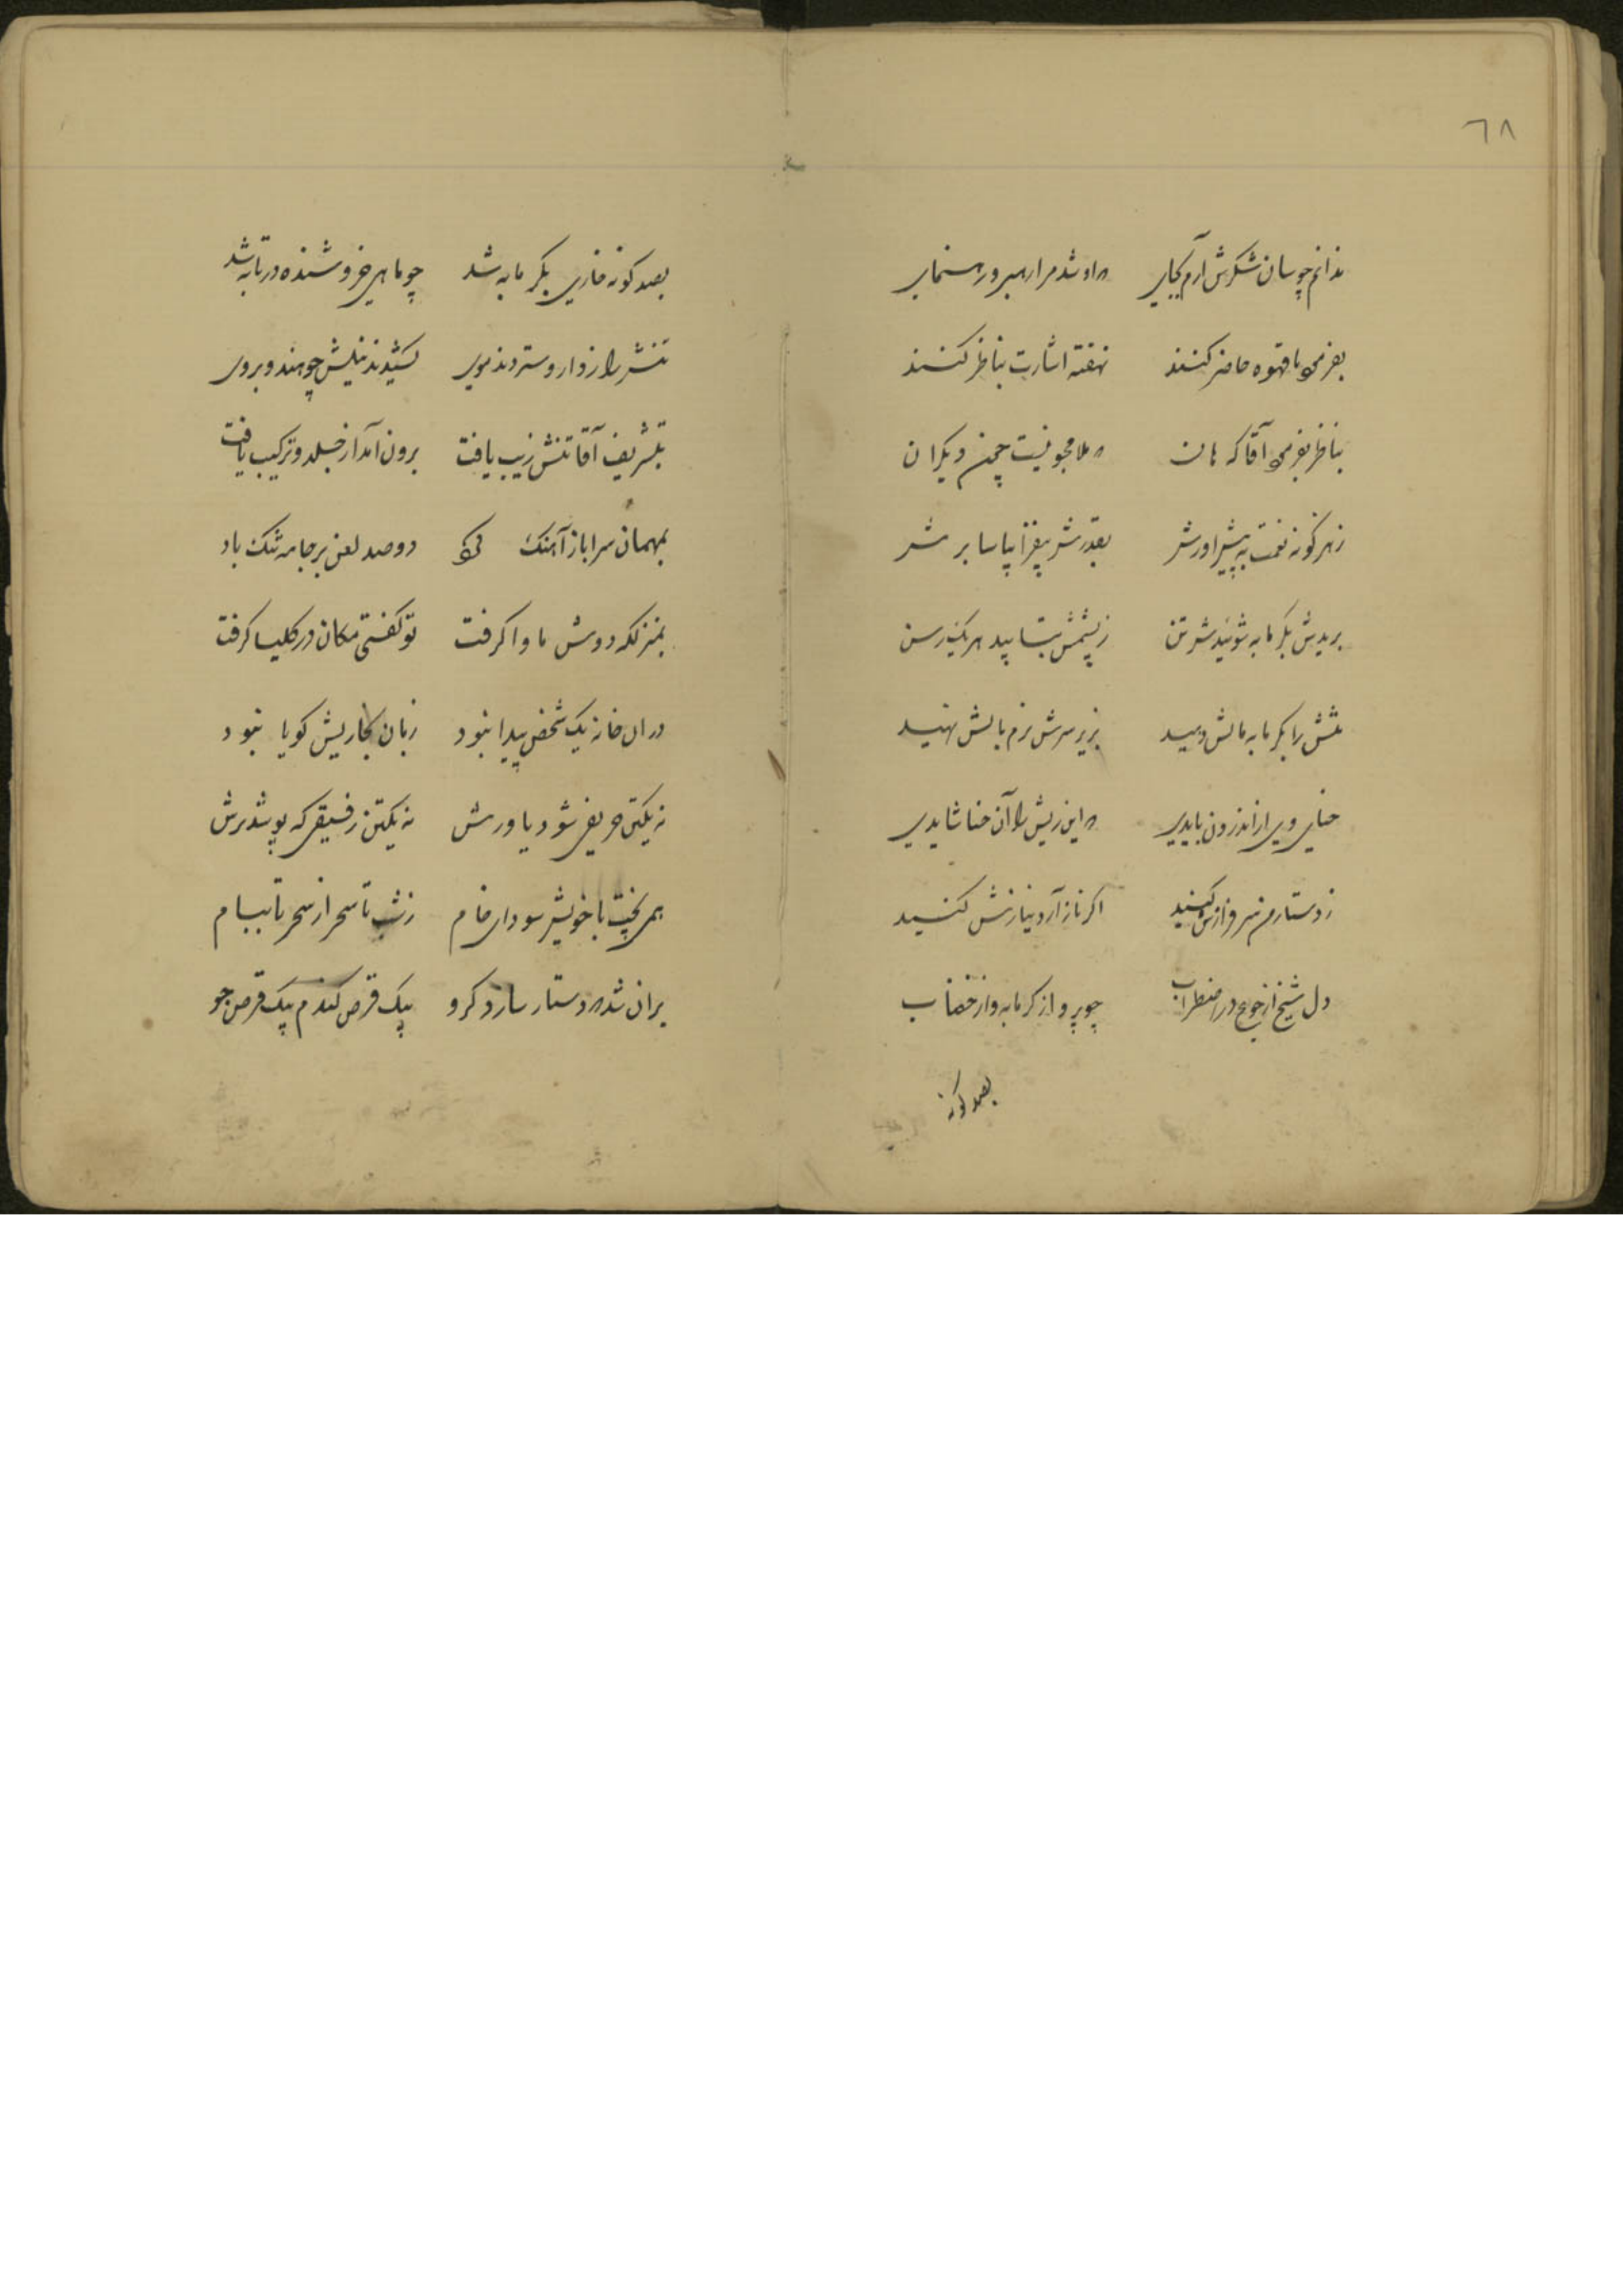 ٦٨
ندانم چسان شکرش آرم بجای که او شد مرا رهبر و رهنمای
بفرمود تا قهوه حاضر کنند نهفته اشارت بناظر کنند
بناظر بفرمود آقا که هان که ملا محو نیست چون دیگران
زهر گونه نعمت به پیش آورش بقدرش بیفزا بپا سا برش
بریدش بگرمابه شوئیدش تن زپشمش بتابید هر یک رسن
تنش را بگرمابه مالش دهید بزیر سرش نرم بالش نهید
حنای وی از اندرون بایدی که این ریش را آن حنا شایدی
زدستار من سرفرازش کنید اگر ناز آرد نیازش کنید
دل شیخ از جوع در اضطراب چو پرداز گرمابه و از خضاب
بصد گونه
بصد گونه خاری بگرمابه شد چو ماهی خروشنده در تابه شد
تنش را ز دارو ستردند موی کشیدند نیلش چو هندو بروی
بتشریف آقا تنش زیب یافت برون آمد از جلد و ترکیب یافت
بمهمان سرا باز آهنک کرد دو صد لعن بر جامه تنک باد
بمنزلگه دوش ماوا گرفت تو گفتی مکان در کلیسا گرفت
در ان خانه یک شخص پیدا نبود زبان بجاریش گویا نبود
نه یکتن حریفی شود یاورش نه یکتن رفیقی که پوشد برش
همی پخت با خویش سودای خام ز شب تا سحر از سحر تا بشام
بران شد که دستار سازد گرو بیک قرص گندم بیک قرص جو